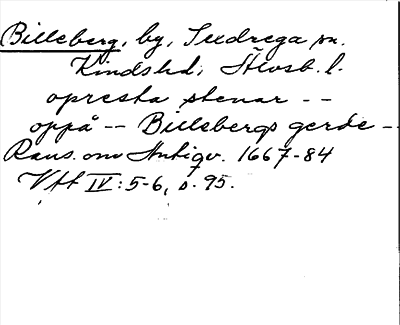 Billeberg, by, Sexdrega sn.
Kindshd, Älvsb. l.
opresta stenar --
oppå -- Billebergs gerde --
Rans. om Antiqv. 1667-84
VFT IV: 5-6, s. 95.